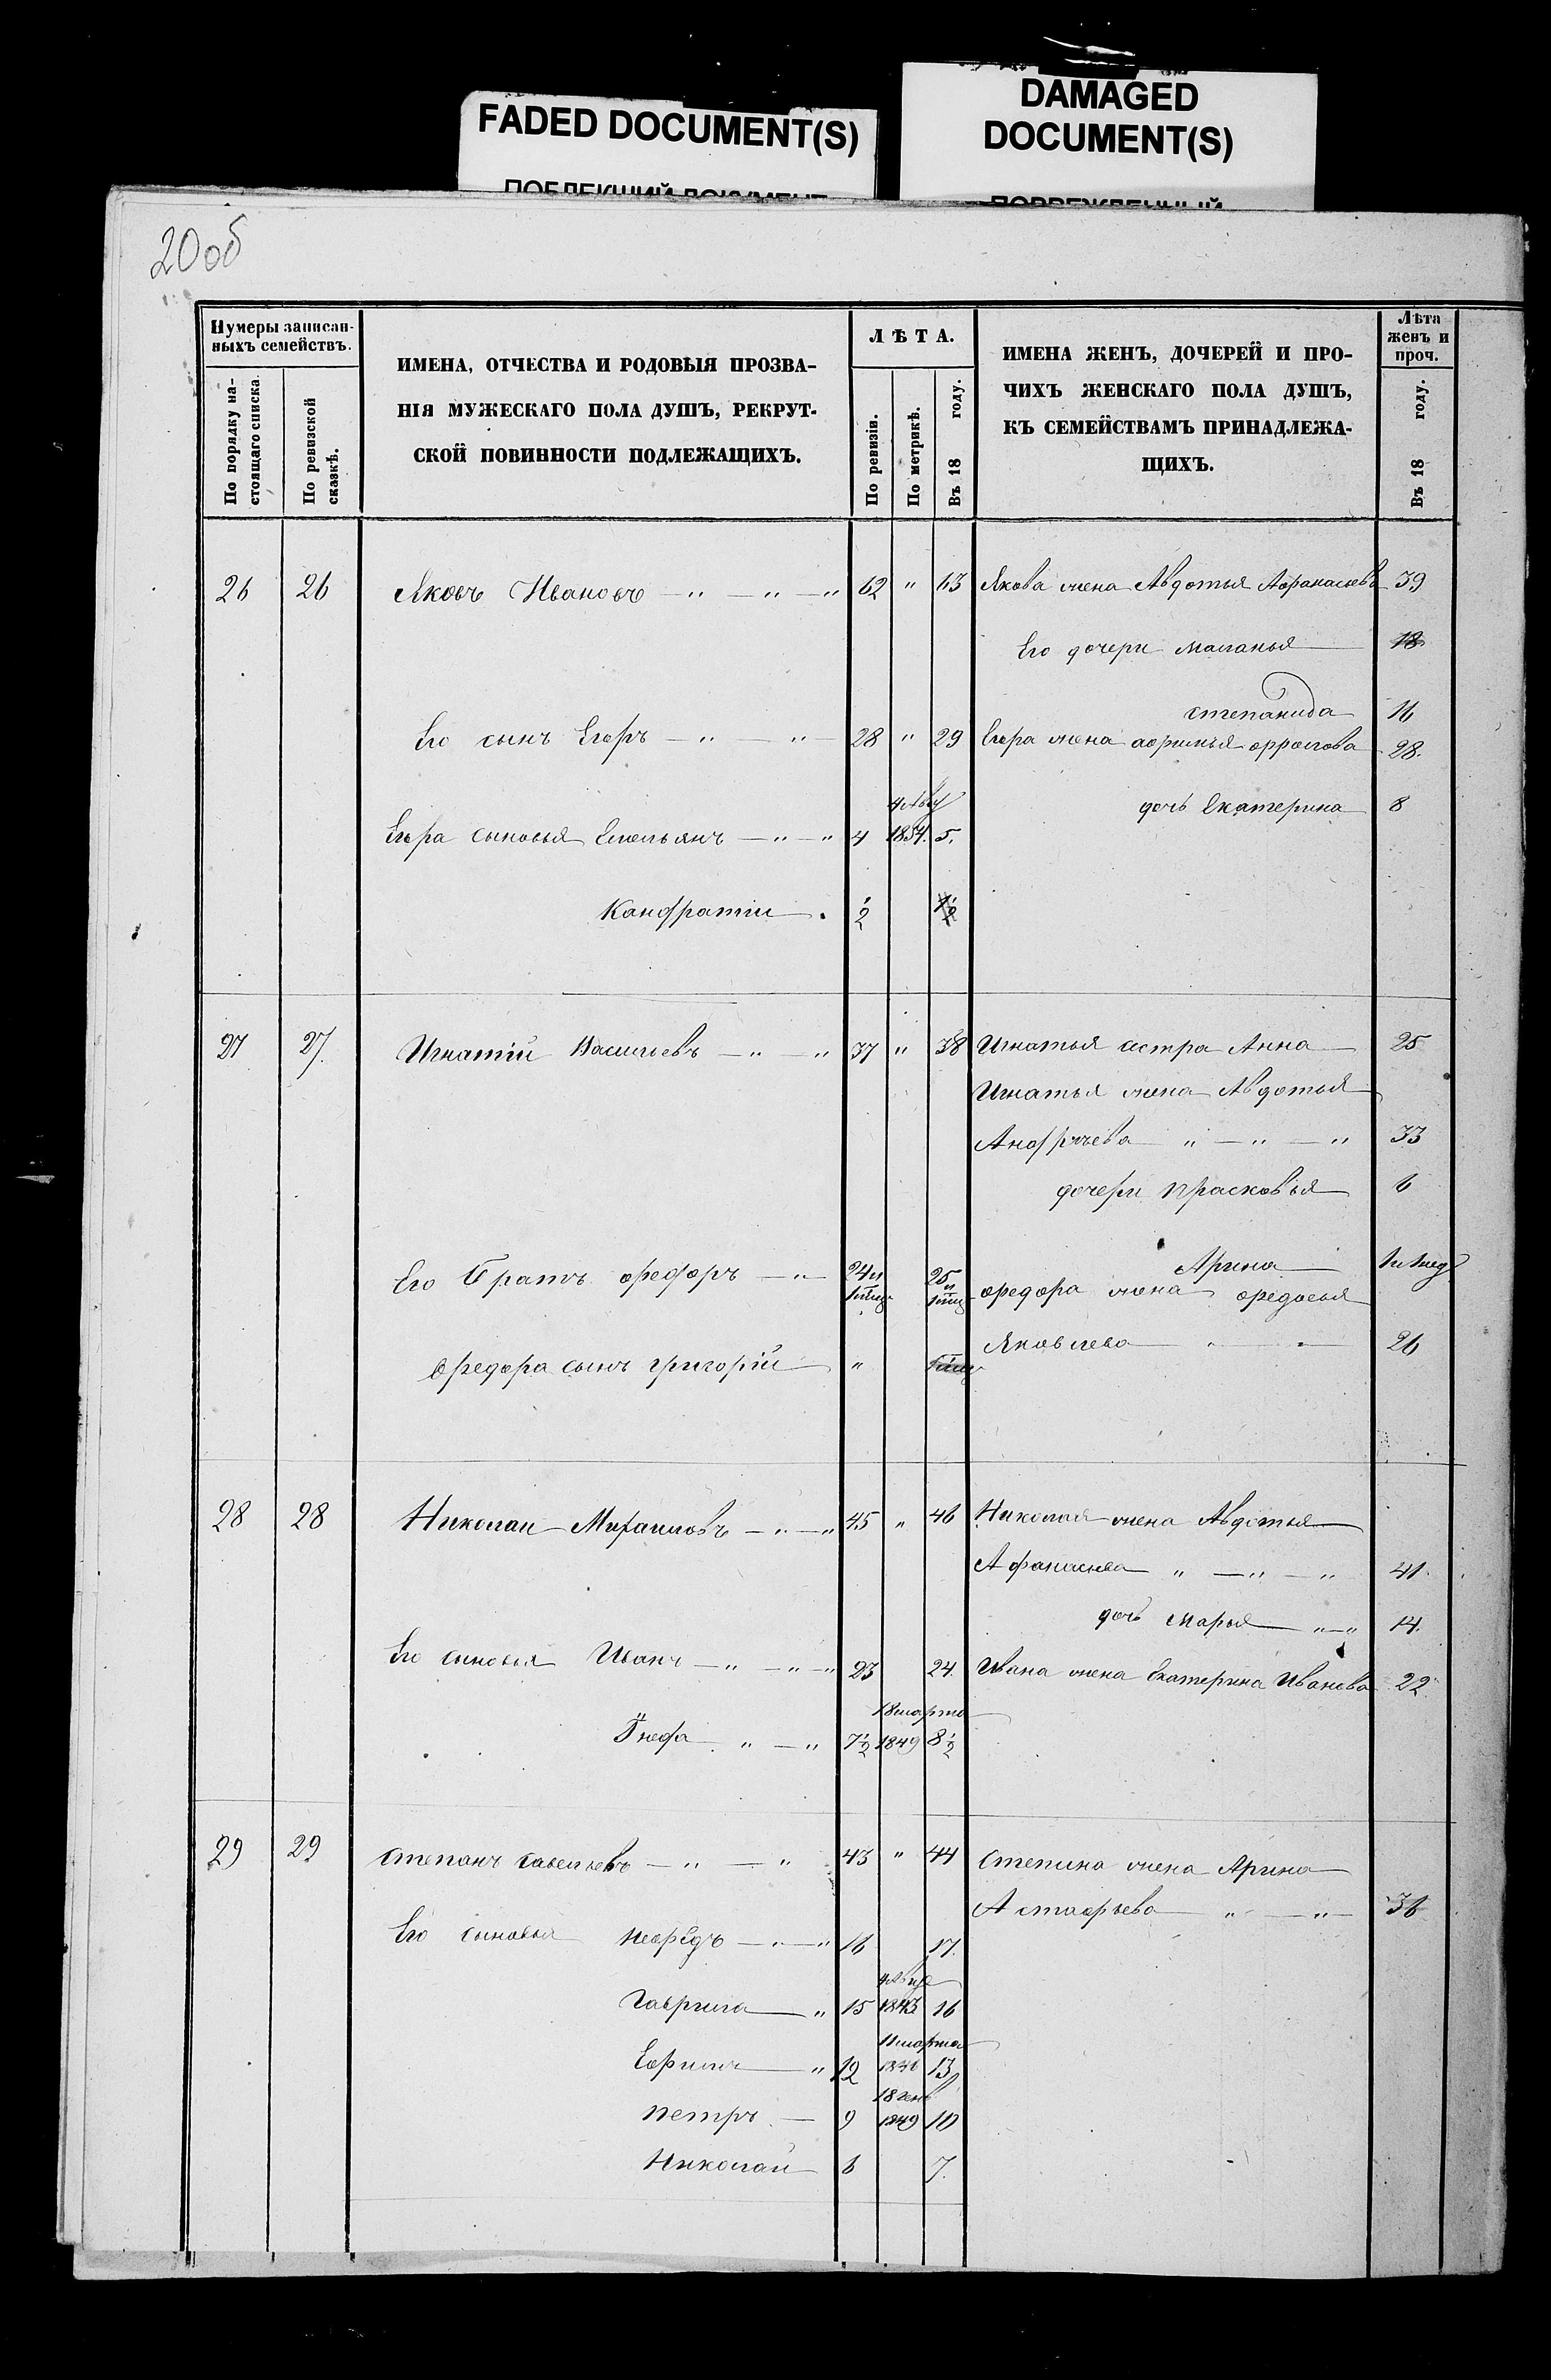 FADED DOCUMENT(S)
DAMAGED
DOCUMENT(S)
20 об
Нумеры записан-
ныхъ семействъ.
По порядку на-
стоящаго списка.
По ревизской
сказкѣ.
ИМЕНА, ОТЧЕСТВА И РОДОВЫЯ ПРОЗВА-
НІЯ МУЖЕСКАГО ПОЛА ДУШЪ, РЕКРУТ-
СКОЙ ПОВИННОСТИ ПОДЛЕЖАЩИХЪ.
ЛѢТА.
По ревизіи.
По метрикѣ.
Въ 18 году.
ИМЕНА ЖЕНЪ, ДОЧЕРЕЙ И ПРО-
ЧИХЪ ЖЕНСКАГО ПОЛА ДУШЪ,
КЪ СЕМЕЙСТВАМЪ ПРИНАДЛЕЖА-
ЩИХЪ.
Лѣта
женъ и
проч.
Въ 18 году.
26 26 Яковъ Ивановъ — " — " — " 62 " 63 Якова жена Авдотья Афанасьева 39
Его дочери Маланья 18
Степанида 16
Его сынъ Егоръ — " — " 28 " 29 Егора жена Афимья Фролова 28.
дочь Екатерина 8
Егора сыновья Емельянъ — " — " 4 1854. 5.
Кандратiи 1/2
27 27. Игнатiй Васильевъ — " — " 37 " 38 Игнатья сестра Анна 25
Игнатья жена Авдотья
Андрѣева " — " — " 33
дочери Прасковья 6
Арина
Его братъ Федоръ — " 24 и 25 и Федора жена Федосья
Яковлева 26
Федора сынъ Григорiй "
28 28 Николаи Михаиловъ — " — " 45 " 46 Николая жена Авдотья
Афанасьева " — " — " 41.
дочь Марья " — " 14.
Его сыновья Иванъ — " — " — " 23 24. Ивана жена Екатерина Иванова 22.
18 марта
" — " 7 1/2 1849 8 1/2
29 29 Степанъ Савельевъ — " — " 43 " 44 Степана жена Арина
Астафьева " — " 36
Его сыновья Нефёдъ — " — " 16 17.
Гаврила " 15 1843 16
11 марта
Ефимъ " 12 1846 13
18 генв
Петръ — 9 1849 10
Николай 6 7.